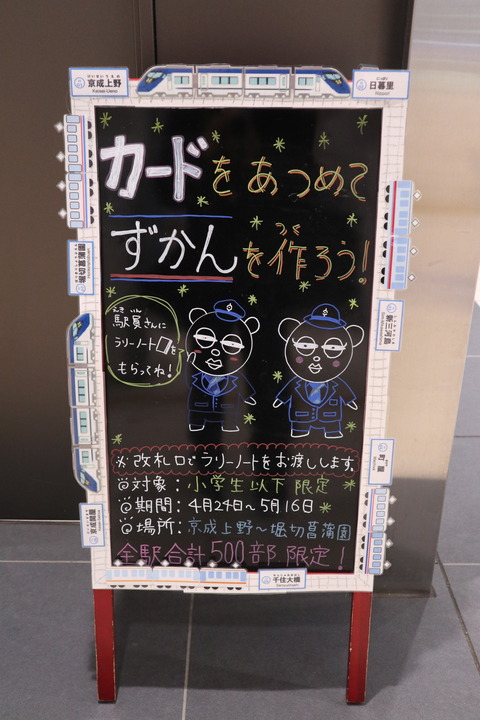 けいせいうえの
京成上野
Keisei-Ueno
にっぽり
日暮里
Nippori
カードをあつめて
ずかんを作ろう!
つく
えき いん
駅員さんに
ラリーノートを
もらってね!
堀切菖蒲園
新三河島
町屋
京成関屋
※改札口でラリーノートをお渡しします。
対象:小学生以下限定
期間:4月29日~5月16日
場所:京成上野~堀切菖蒲園
全駅合計500部限定!
千住大橋